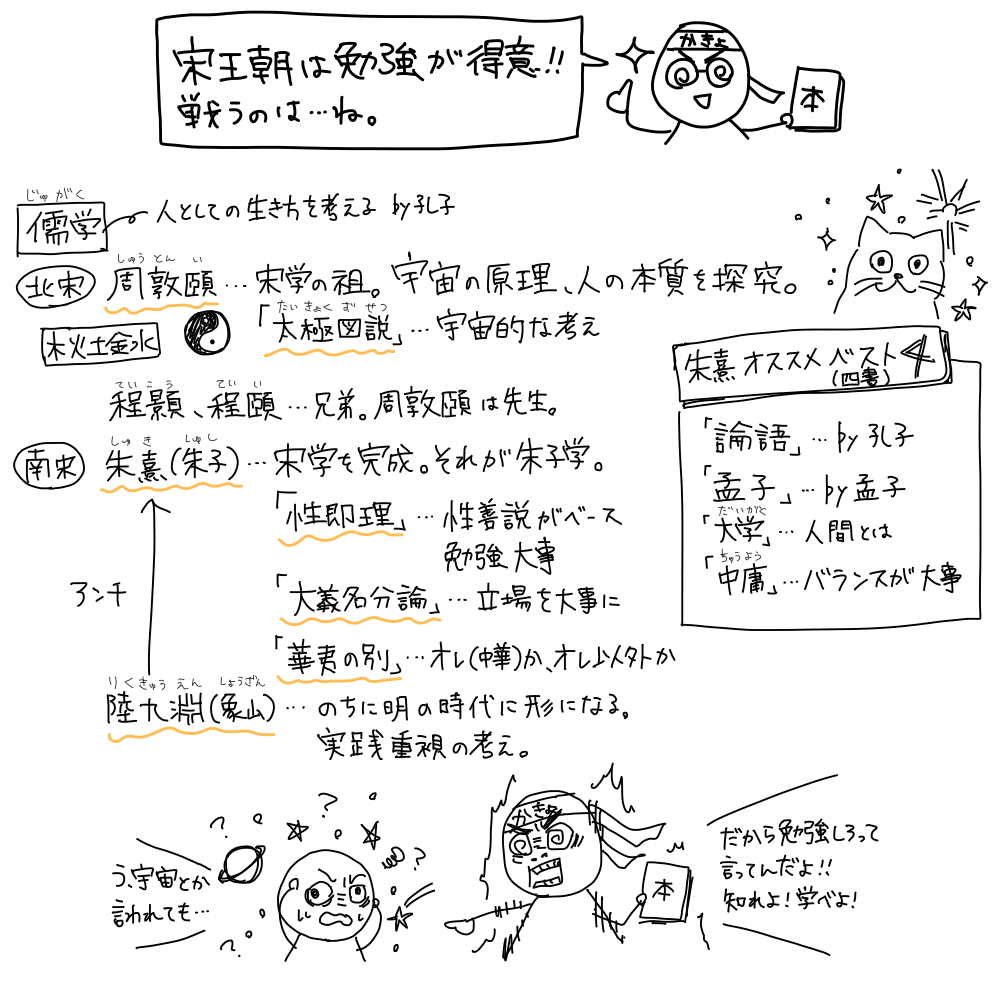 宋王朝は勉強が得意!!
戦うのは…ね。
かきょ
本
じゅがく
儒学
人としての生き方を考える by孔子
しゅうとんい
北宋 周敦頤…宋学の祖。宇宙の原理、人の本質を探究。
木火土金水
たいきょくずせつ
「太極図説」…宇宙的な考え
ていこう ていい
程顥、程頤…兄弟。周敦頤は先生。
しゅき しゅし
南宋 朱熹(朱子)…宋学を完成。それが朱子学。
「性即理」…性善説がベース
勉強大事
「大義名分論」…立場を大事に
「華夷の別」…オレ(中華)か、オレ以外か
アンチ
りくきゅうえん しょうざん
陸九淵(象山)…のちに明の時代に形になる。
実践重視の考え。
朱熹オススメベスト4
(四書)
「論語」…by孔子
「孟子」…by孟子
だいがく
「大学」…人間とは
ちゅうよう
「中庸」…バランスが大事
う、宇宙とか
言われても…
かきょ
本
だから勉強しろって
言ってんだよ!!
知れよ!学べよ!